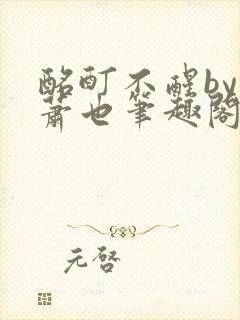 酩酊不醒by
萧也笔趣阁
元啓